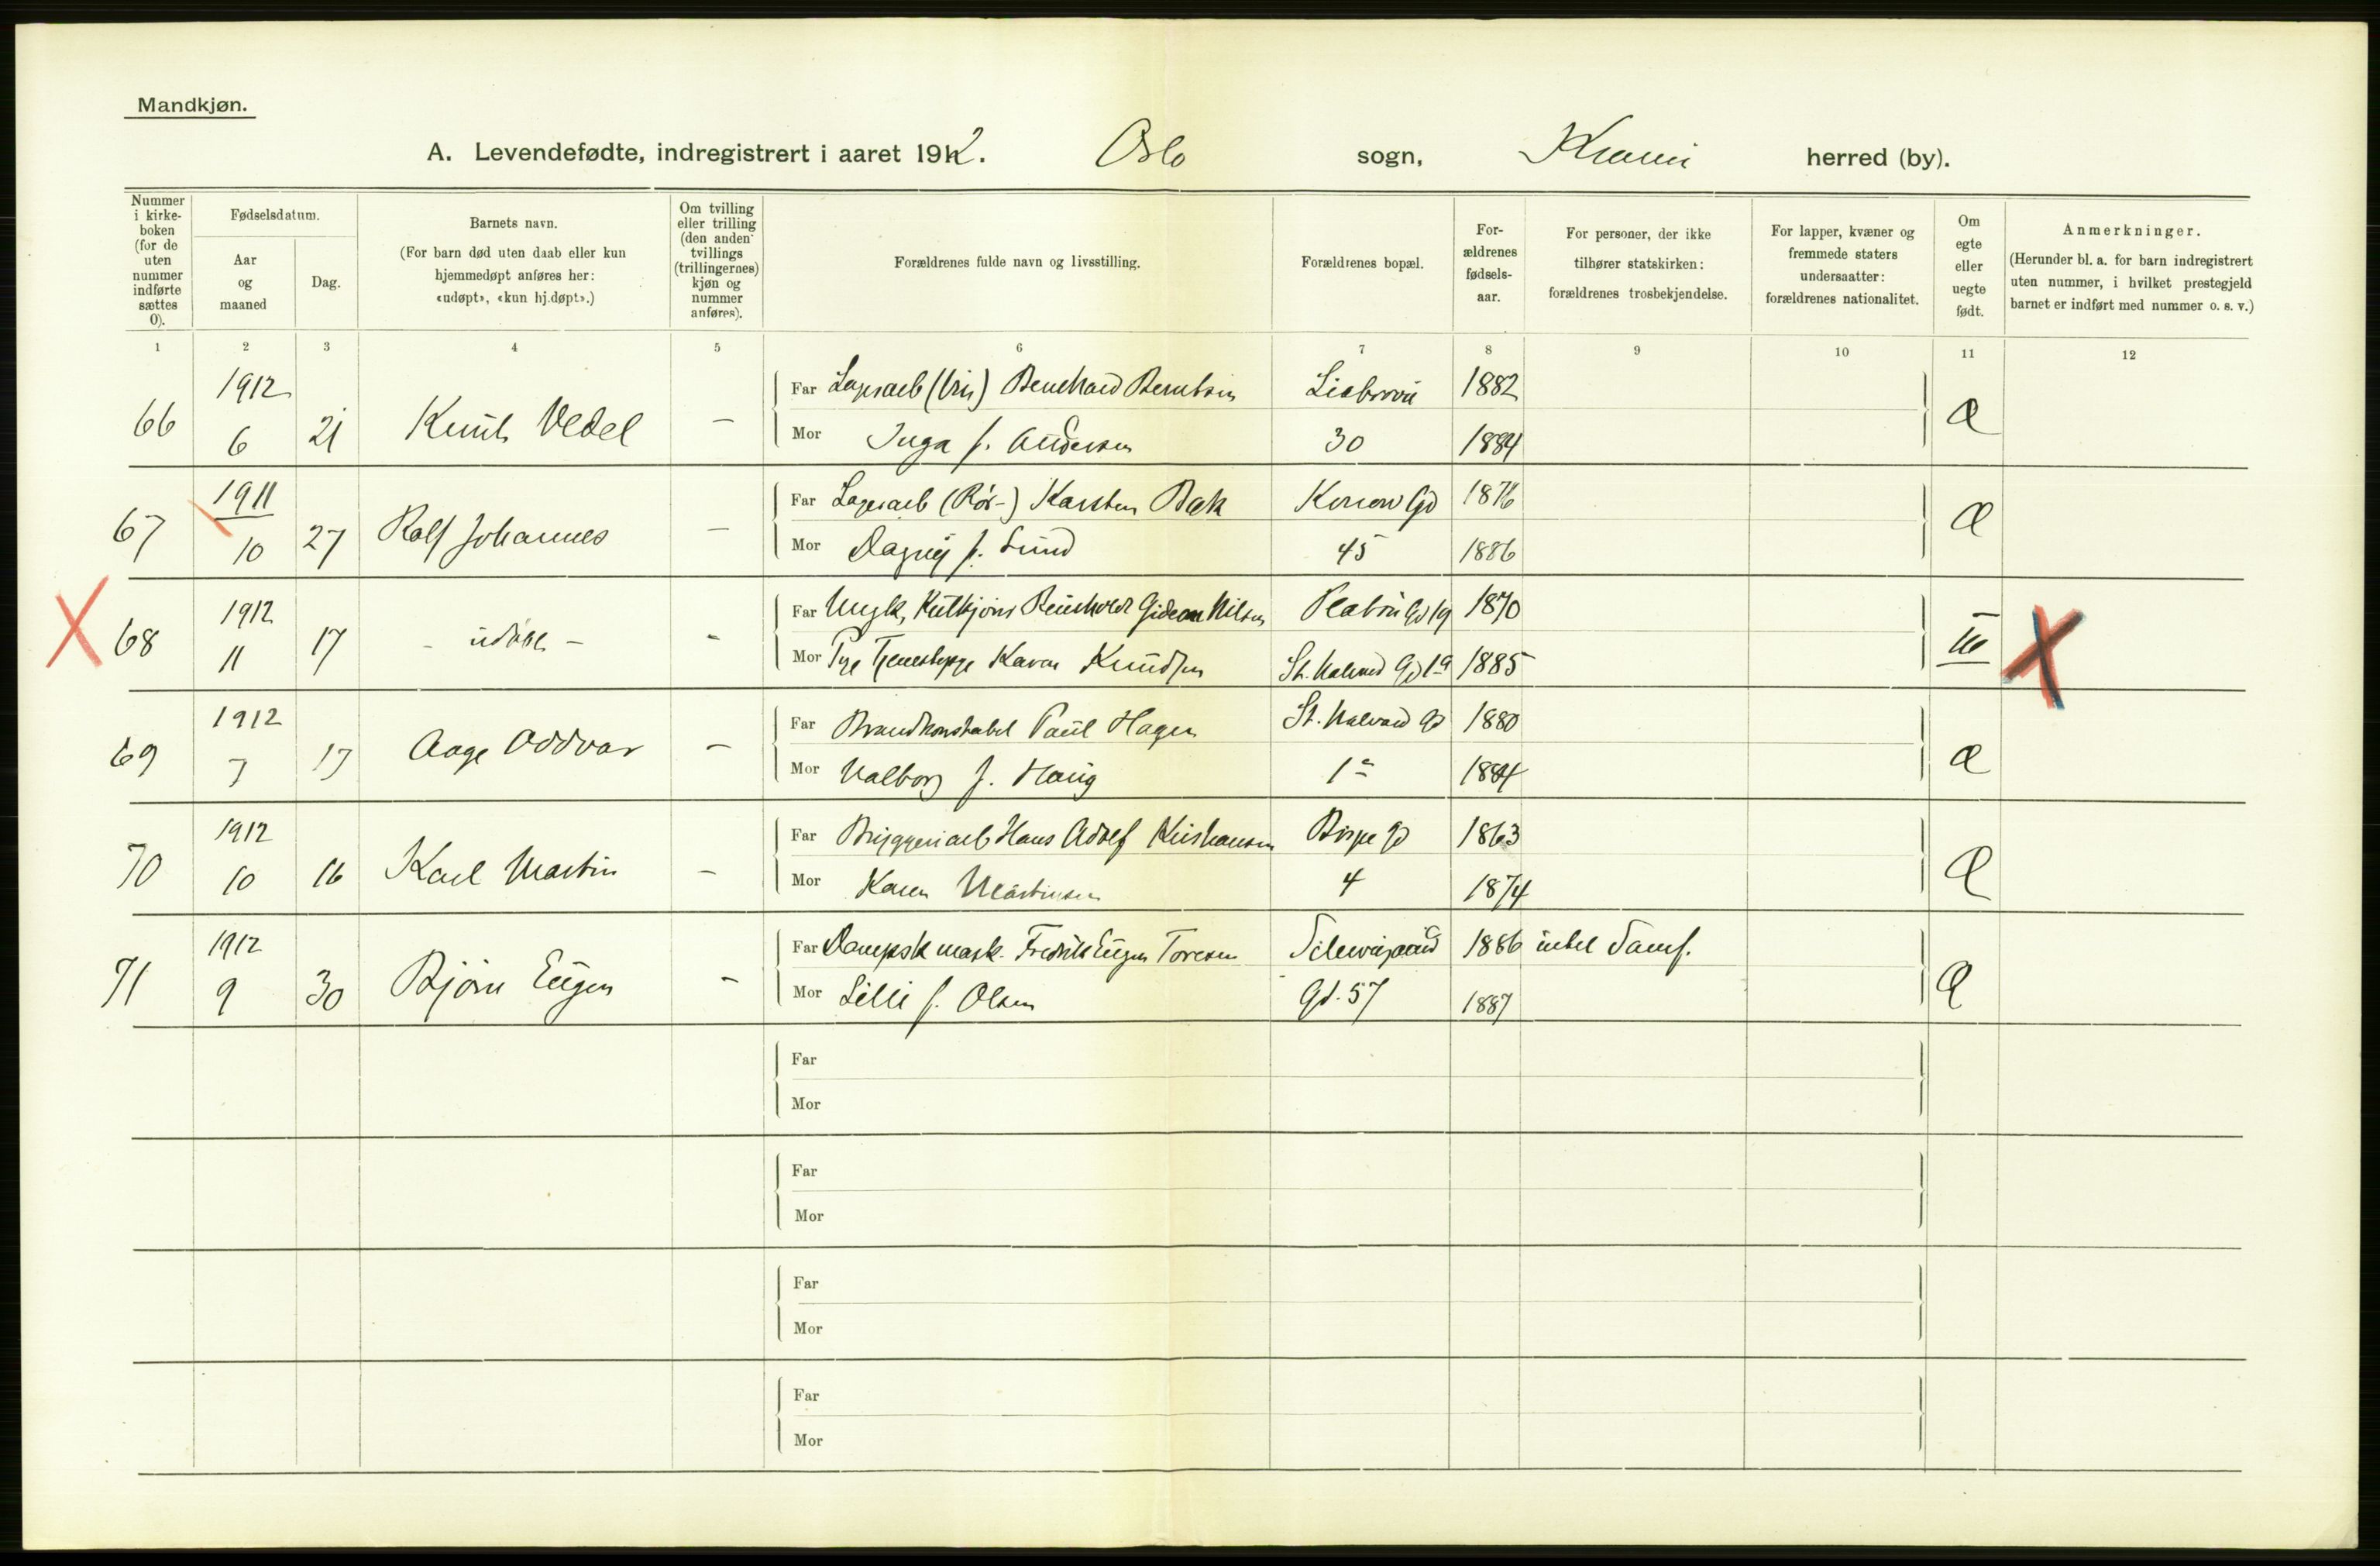 Mandkjøn.
A. Levendefødte, indregistrert i aaret 1912. Oslo sogn, Kra herred (by).
Nummer i kirke-boken (for de uten nummer indførte sættes 0).
Fødselsdatum.
Aar og maaned
Dag.
Barnets navn.
(For barn død uten daab eller kun hjemmedøpt anføres her: «udøpt», «kun hj.døpt».)
Om tvilling eller trilling (den anden tvillings (trillingernes) kjøn og nummer anføres).
Forældrenes fulde navn og livsstilling.
Forældrenes bopæl.
For-ældrenes fødsels-aar.
For personer, der ikke tilhører statskirken: forældrenes trosbekjendelse.
For lapper, kvæner og fremmede staters undersaatter: forældrenes nationalitet.
Om egte eller uegte født.
Anmerkninger.
(Herunder bl. a. for barn indregistrert uten nummer, i hvilket prestegjeld barnet er indført med nummer o. s. v.)
1 2 3 4 5 6 7 8 9 10 11 12
1912 Far Lagerarb (Vin) Bernhard Berntsen 1882
66 6 21 Knut Vedel — Mor Inga f. Andersen 30 1884 Æ
1911 Far Lagerarb (Rör-) Karsten Bæk Konow Gd 1876
67 10 27 Rolf Johannes — Mor Dagny f. Lund 45 1886 Æ
1912 Far Ungk, Reinholdt Gideon Nilsen Platou Gd 19 1870
68 11 17 - udöbt - - Mor Pge Karen Knudsen St. Halvard Gd 1a 1885
1912 Far Brandkonstabel Paul Hagen St. Halvard Gd 1880
69 7 17 Aage Oddvar — Mor Valborg f. Haug 1a 1884 Æ
1912 Far Bryggeriarb Hans Adolf Kristiansen Bispe Gd 1863
70 10 16 Karl Martin - Mor Karen Martinsen 4 1874 Æ
1912 Far Dampsk mask. Fredrik Eugen Toresen Schweigaard 1886 Samf.
71 9 30 Bjørn Eugen - Mor Lilli f. Olsen Gd. 57 1887 Æ
Far
Mor
Far
Mor
Far
Mor
Far
Mor